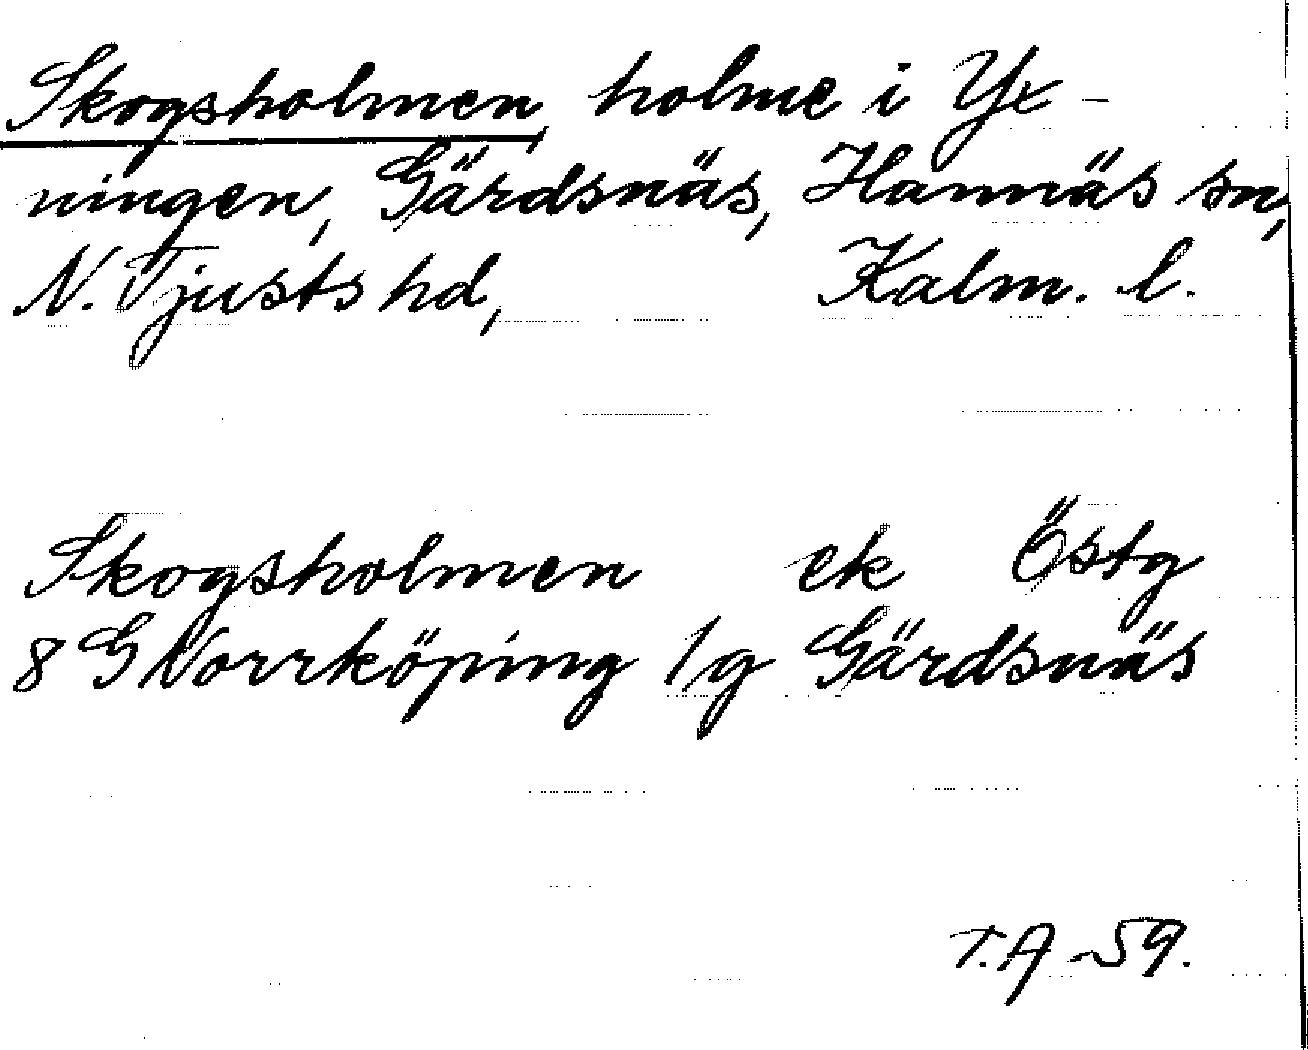 Skogsholmen, holme i Yx-
ningen, Gärdsnäs, Hannäs sn,
N. Tjusts hd, Kalm. l.
Skogsholmen ek Östg
8 G Norrköping 1g Gärdsnäs
T.A -59.